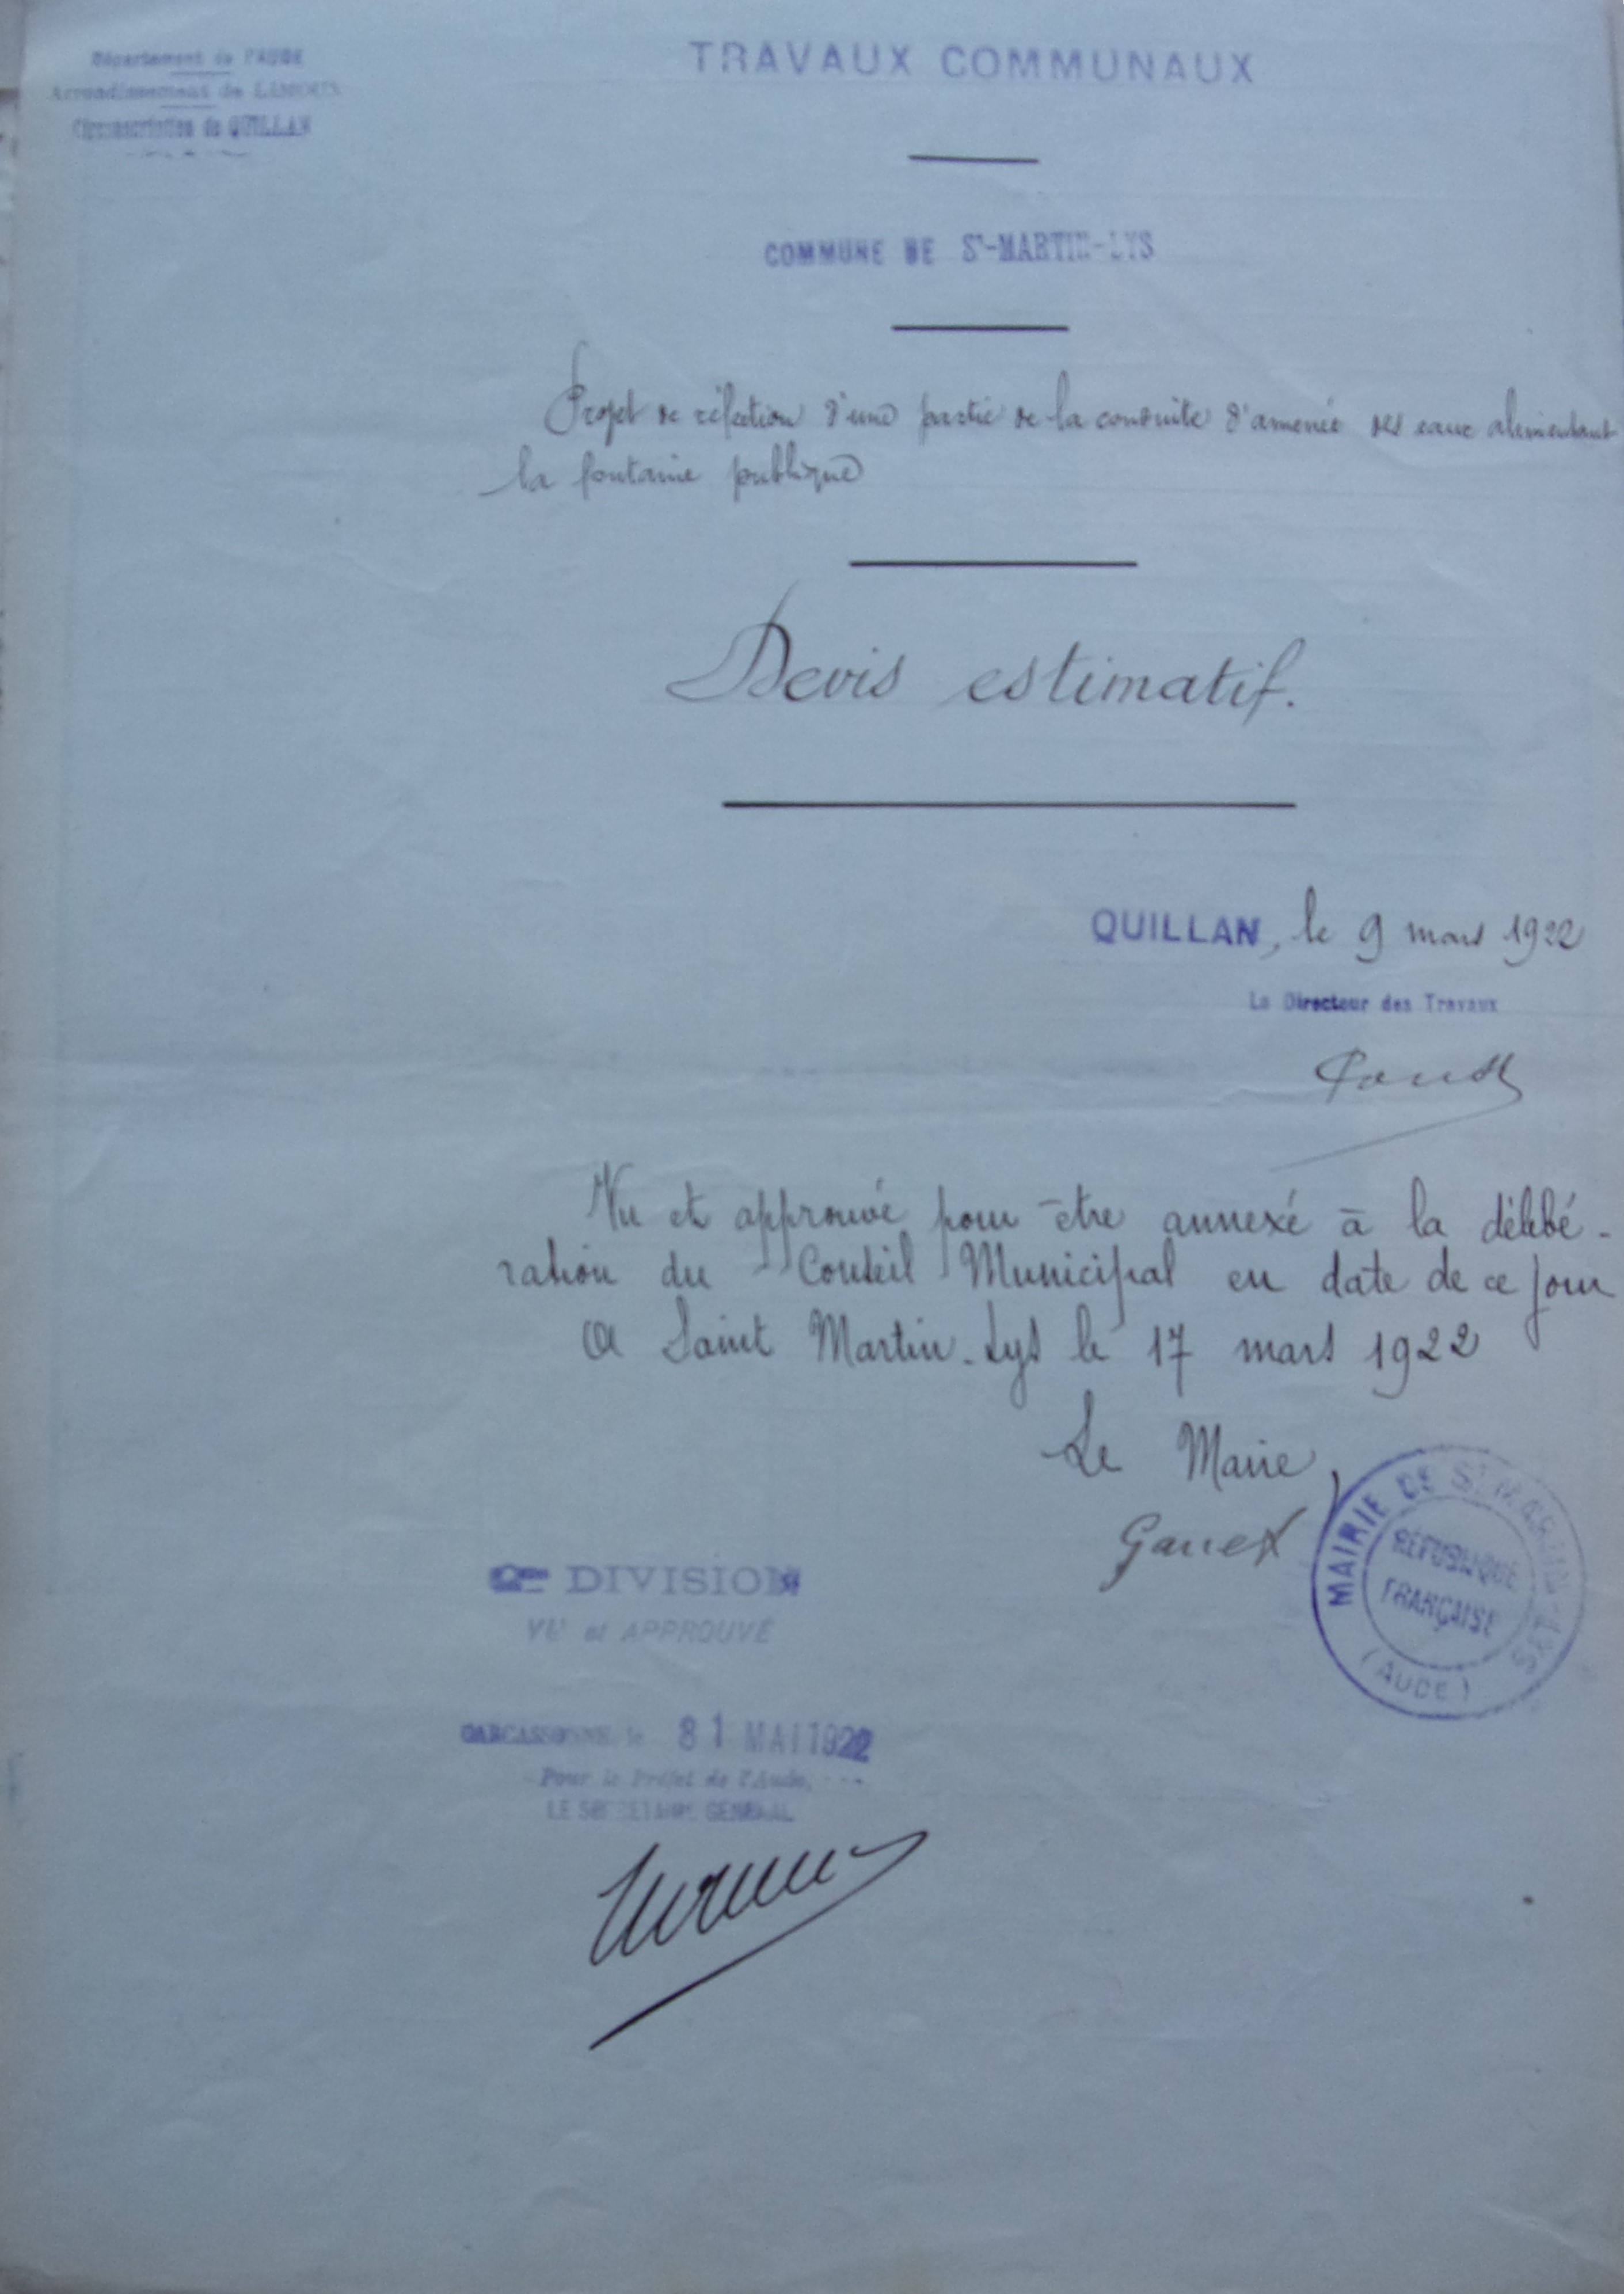 Département de l'AUDE
Arrondissement de LIMOUX
Circonscription de QUILLAN
TRAVAUX COMMUNAUX
COMMUNE DE St-MARTIN-LYS
Projet de réfection d'une partie de la conduite d'amenée des eaux alimentant
la fontaine publique
Devis estimatif.
QUILLAN, le 9 mars 1922
Le Directeur des Travaux
Vu et approuvé pour être annexé à la délibé-
ration du Conseil Municipal en date de ce jour
A Saint Martin-Lys le 17 mars 1922
Le Maire,
MAIRIE DE St MARTIN-LYS
RÉPUBLIQUE
FRANÇAISE
(AUDE)
2me DIVISION
VU et APPROUVÉ
CARCASSONNE, le 31 MAI 1922
Pour le Préfet de l'Aude,
LE SECRÉTAIRE GÉNÉRAL